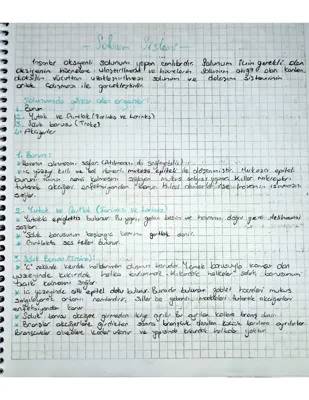 Solunum Sistemi
İnsanlar oksijenli solunum yapan canlılardır. Solunum için gerekli olan
oksijenin hücrelere ulaştırılması ve hücrelerin solunumla oluşan karbon
dioksitin vücuttan uzaklaştırılması solunum ve dolaşım sisteminin
ortak çalışması ile gerçekleştirilir.
Solunumda görev alan organlar:
1. Burun
2. Yutak ve Gırtlak (Farinks ve Larinks)
3. Soluk borusu (Trake)
4. Akciğerler
1. Burun:
Havanın alınmasını sağlar
İç yüzeyi kıllı ve mukozalı epitel ile döşenmiştir. Mukoza epitel
burun nemli kalmasını sağlayan mukus salgısı yapar. Kıllar
tutarak akciğeri enfeksiyondan korur. Kılcal damarlar ise havanın ısınmasını
sağlar.
2. Yutak ve Gırtlak (Farinks ve Larinks)
Yutakta epiglottis bulunur. Bu yapı gelen besin ve havanın doğru yere iletilmesini
sağlar.
Soluk borusunun başlangıç kısmına gırtlak denir.
Gırtlakta ses telleri bulunur.
3. Soluk Borusu (Trake):
"C" şeklinde kıkırdak halkalardan oluşan borudur. Yemek borusuyla komşu olan
yüzeyinde kıkırdak halka bulunmaz. Kıkırdak halkalar soluk borusunun
açık kalmasını sağlar.
İç yüzeyinde silli epitel doku bulunur. Burada bulunan goblet hücreleri mukus
salgılayarak ortamı nemlendirir. Siller ise gelen maddeleri tutarak akciğerleri
enfeksiyondan korur.
Soluk borusu akciğere girmeden ikiye ayrılır. Bu ayrılan kollara bronş denir.
Bronşlar akciğerlere girdikten sonra bronşçuk denilen küçük borulara ayrılırlar.
Bronşçuklar alveollere kadar uzanır ve yapısında kıkırdak halkalar yoktur.